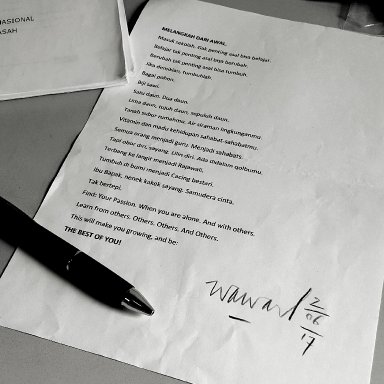 NASIONAL
ASAH
MELANGKAH DARI AWAL.
Masuk sekolah. Gak penting asal bisa belajar.
Belajar tak penting asal bisa berubah.
Berubah tak penting asal bisa tumbuh.
Jika demikian, tumbuhlah.
Bagai pohon.
Biji sawi.
Satu daun. Dua daun.
Lima daun, tujuh daun, sepuluh daun.
Tanah subur rumahmu. Air siraman lingkunganmu.
Vitamin dan madu kehidupan sahabat-sahabatmu.
Semua orang menjadi guru. Menjadi sahabats.
Tapi obor diri, sayang. Ulin diri. Ada didalam qolbumu.
Terbang ke langit menjadi Rajawali,
Tumbuh di bumi menjadi Cacing bestari.
Ibu Bapak, nenek kakek sayang. Samudera cinta.
Tak bertepi.
Find: Your Passion. When you are alone. And with others.
Learn from others. Others. Others. And Others.
This will make you growing, and be:
THE BEST OF YOU!
wawan 2/06/17